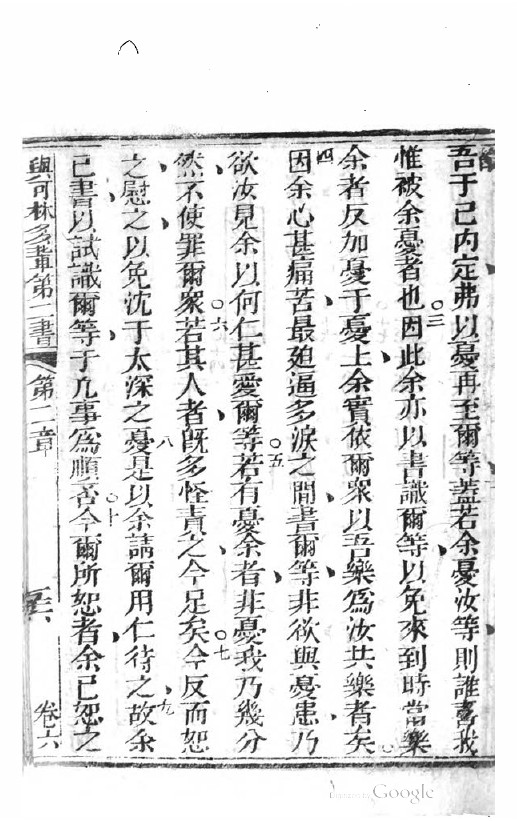 吾于己内定弗以憂再至爾等蓋若余憂汝等則誰喜我
惟被余憂者也○三因此余亦以書識爾等以免來到時當樂
余者反加憂于憂上余實依爾衆以吾樂為汝共樂者矣○
四因余心甚痛苦最廹逼多淚之間書爾等非欲與憂患乃
欲汝見余以何仁甚愛爾等○五若有憂余者非憂我乃幾分
然不使罪爾衆○六若其人者旣多怪責之今足矣○七今反而恕
之慰之以免沈于太深之憂八是以余請爾用仁待之九故余
已書以試識爾等于凡事為順否○十今爾所恕者余已恕之
與可林多輩第二書 第二章 卷六
Digitized by Google